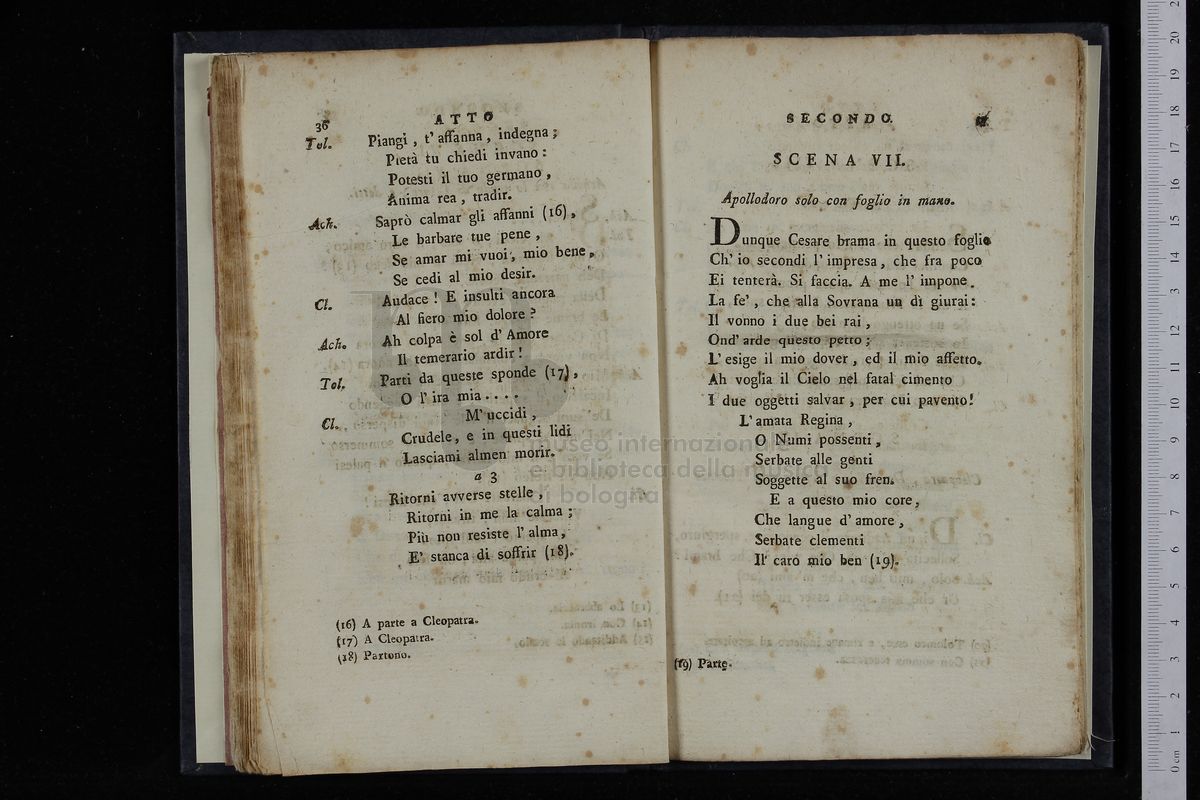 36
ATTO
Tol. Piangi , t' affanna , indegna ;
Pietà tu chiedi invano :
Potesti il tuo germano ,
Anima rea , tradir.
Ach. Saprò calmar gli affanni (16) ,
Le barbare tue pene ,
Se amar mi vuoi , mio bene ,
Se cedi al mio desir.
Cl. Audace ! E insulti ancora
Al fiero mio dolore ?
Ach. Ah colpa è sol d' Amore
Il temerario ardir !
Tol. Parti da queste sponde (17) ,
O l' ira mia . . . .
Cl. M' uccidi ,
Crudele, e in questi lidi
Lasciami almen morir.
a 3
Ritorni avverse stelle ,
Ritorni in me la calma ;
Più non resiste l' alma ,
E' stanca di soffrir (18).
(16) A parte a Cleopatra.
(17) A Cleopatra.
(18) Partono.
SECONDO.
SCENA VII.
Apollodoro solo con foglio in mano.
Dunque Cesare brama in questo foglio
Ch' io secondi l' impresa , che fra poco
Ei tenterà. Si faccia. A me l' impone.
La fe' , che alla Sovrana un dì giurai :
Il vonno i due bei rai ,
Ond' arde questo petto ;
L' esige il mio dover , ed il mio affetto.
Ah voglia il Cielo nel fatal cimento
I due oggetti salvar , per cui pavento!
L' amata Regina ,
O Numi possenti ,
Serbate alle genti
Soggette al suo fren.
E a questo mio core ,
Che langue d' amore ,
Serbate clementi
Il caro mio ben (19).
(19) Parte.
museo internazionale
e biblioteca della musica
di bologna
0 cm 1 2 3 4 5 6 7 8 9 10 11 12 13 14 15 16 17 18 19 20 2